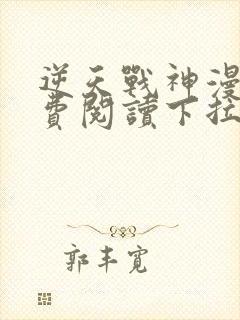 逆天戰神漫
費閱讀下拉
郭丰寬